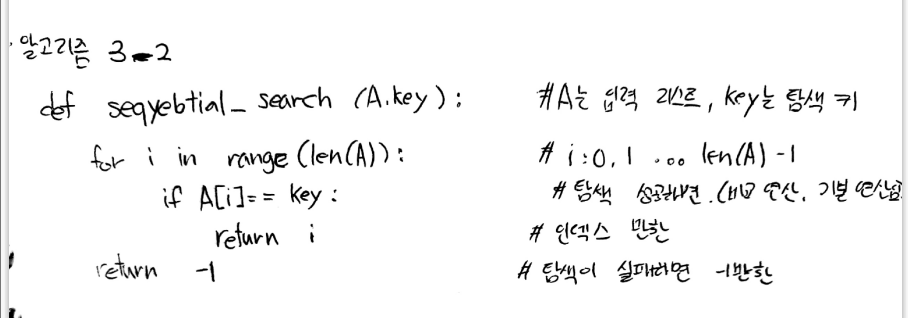 알고리즘 3-2
def seqyebtial_search (A.key): #A는 입력 리스트, key는 탐색 키
for i in range(len(A)): # i:0,1 .... len(A)-1
if A[i]== key: # 탐색 성공하면.(비교 연산, 기본 연산임
return i # 인덱스 반환
return -1 # 탐색이 실패하면 -1반환